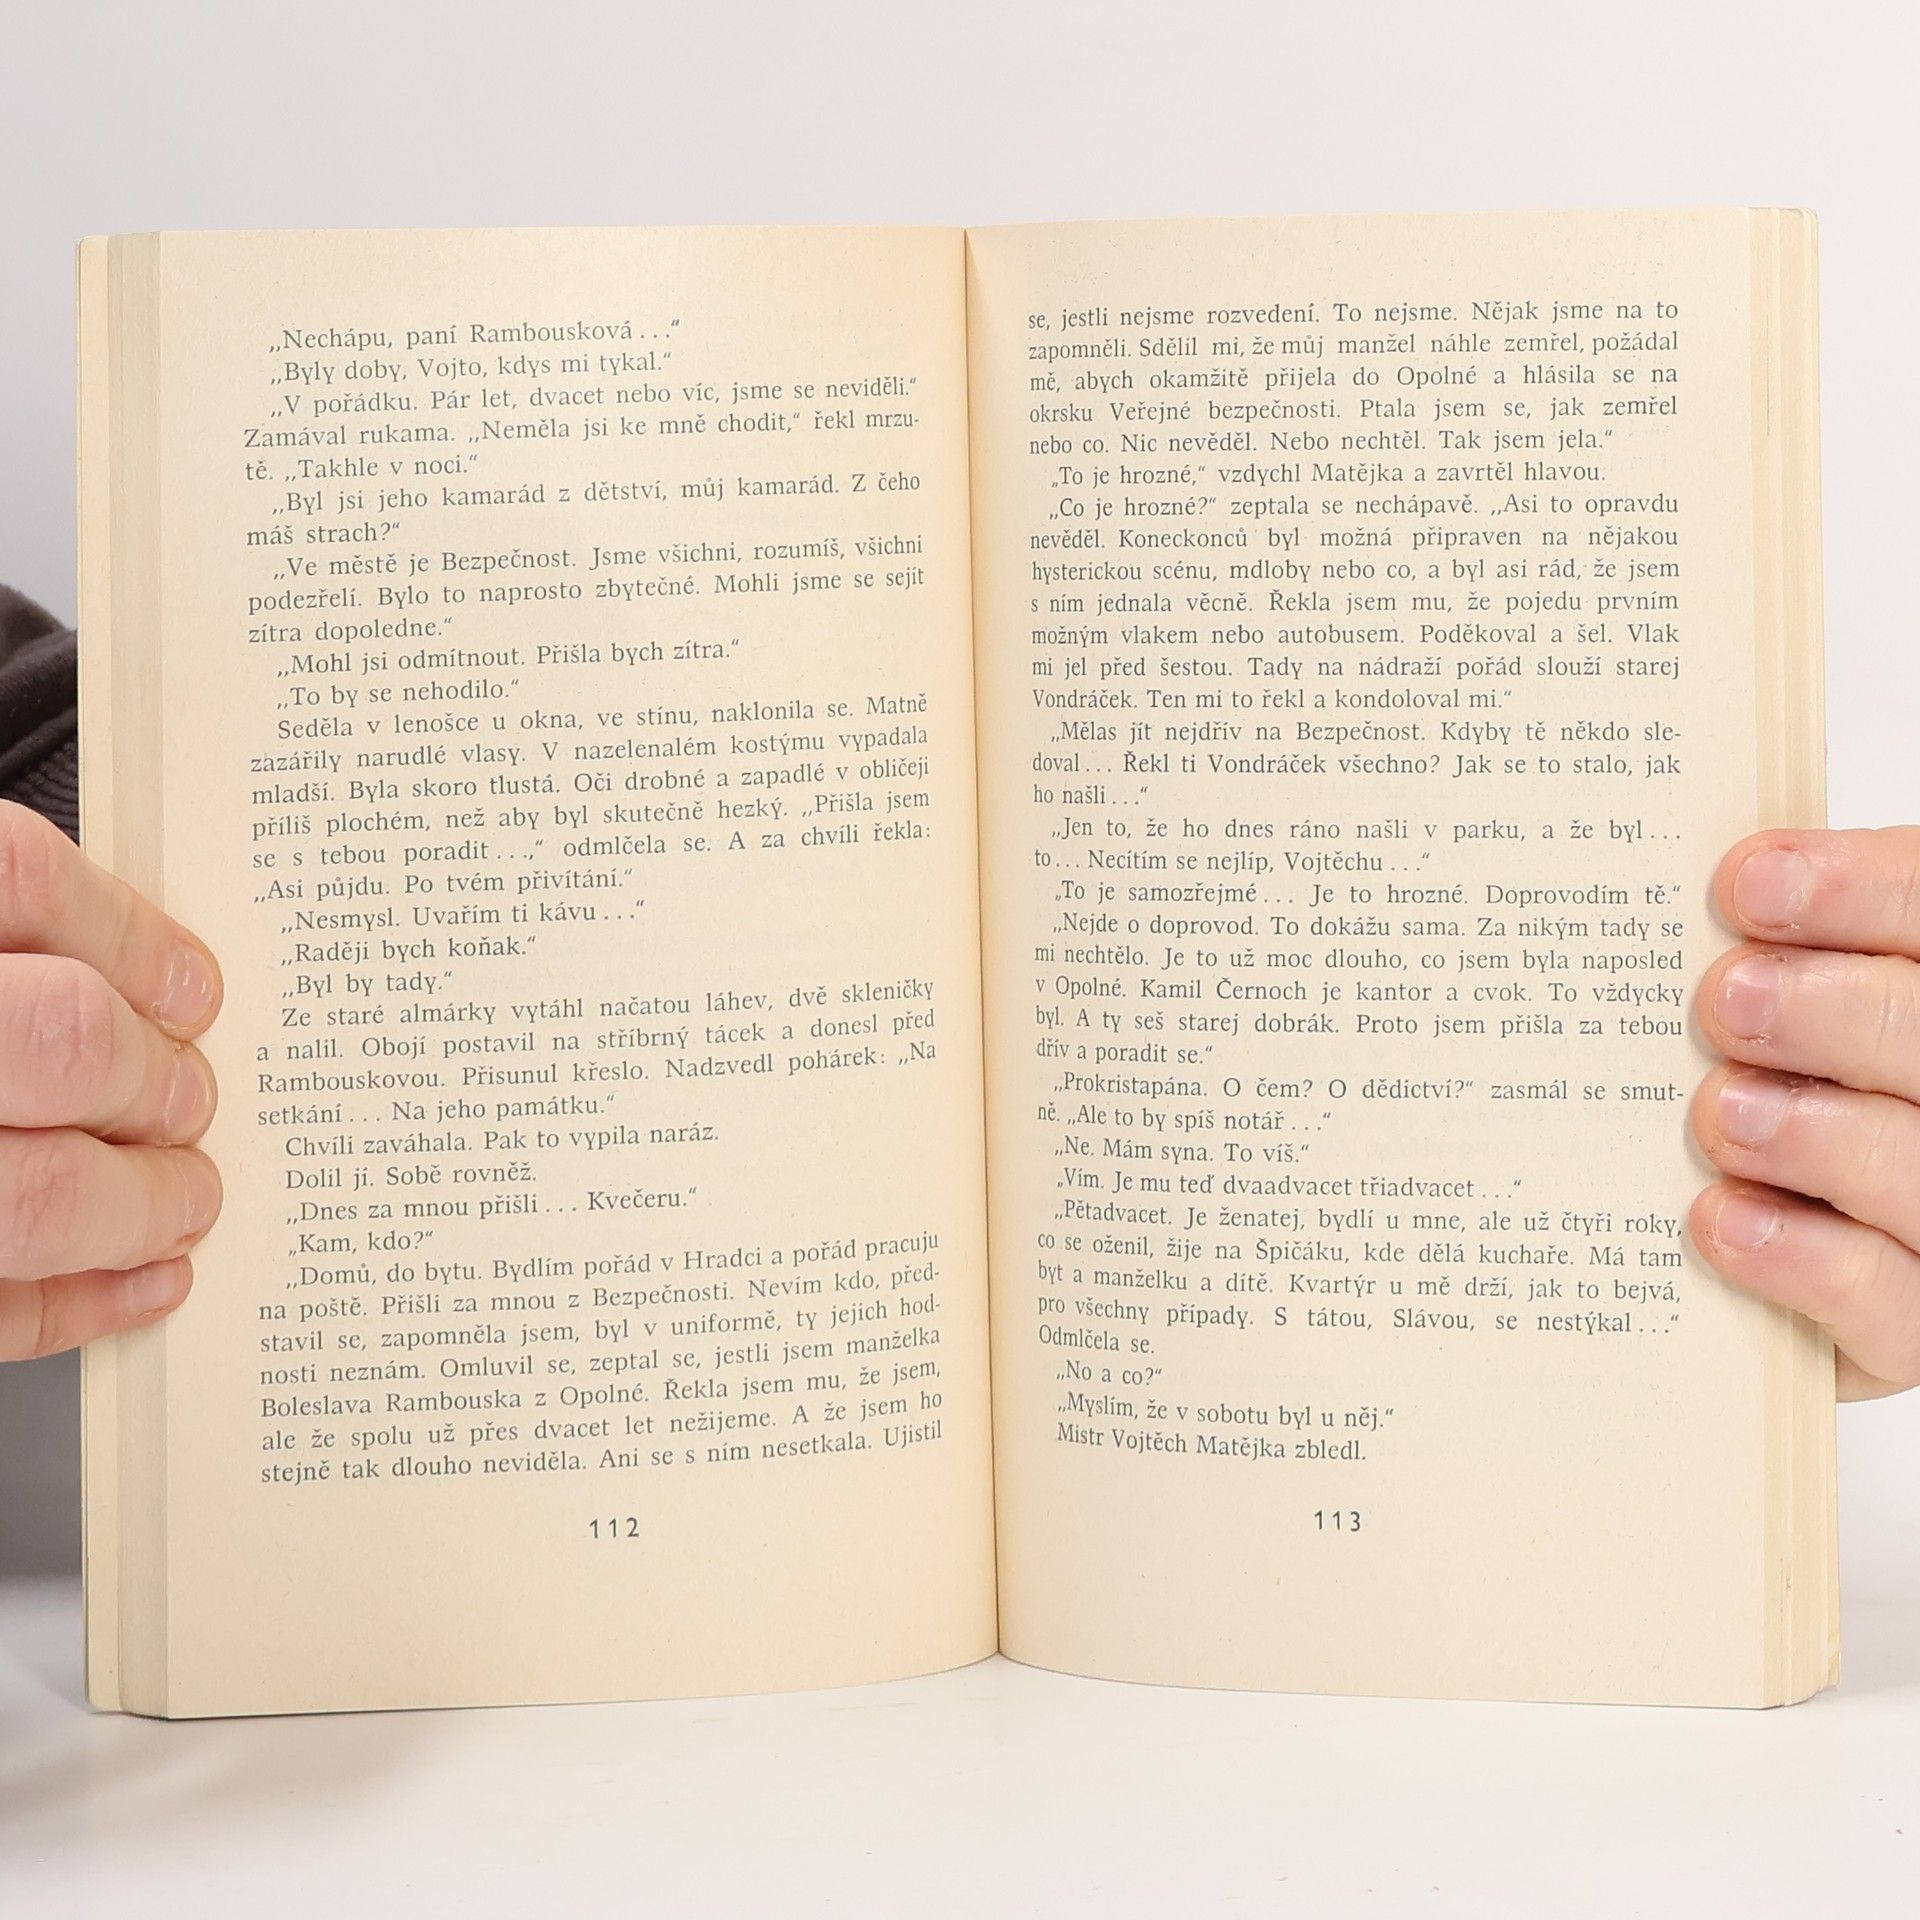 „Nechápu, paní Rambousková . . .“
„Byly doby, Vojto, kdys mi tykal.“
„V pořádku. Pár let, dvacet nebo víc, jsme se neviděli.“
Zamával rukama. „Neměla jsi ke mně chodit,“ řekl mrzu-
tě. „Takhle v noci.“
„Byl jsi jeho kamarád z dětství, můj kamarád. Z čeho
máš strach?“
„Ve městě je Bezpečnost. Jsme všichni, rozumíš, všichni
podezřelí. Bylo to naprosto zbytečné. Mohli jsme se sejít
zítra dopoledne.“
„Mohl jsi odmítnout. Přišla bych zítra.“
„To by se nehodilo.“
Seděla v lenošce u okna, ve stínu, naklonila se. Matně
zazářily narudlé vlasy. V nazelenalém kostýmu vypadala
mladší. Byla skoro tlustá. Oči drobné a zapadlé v obličeji
příliš plochém, než aby byl skutečně hezký. „Přišla jsem
se s tebou poradit . . .,“ odmlčela se. A za chvíli řekla:
„Asi půjdu. Po tvém přivítání.“
„Nesmysl. Uvařím ti kávu . . .“
„Raději bych koňak.“
„Byl by tady.“
Ze staré almárky vytáhl načatou láhev, dvě skleničky
a nalil. Obojí postavil na stříbrný tácek a donesl před
Rambouskovou. Přisunul křeslo. Nadzvedl pohárek: „Na
setkání . . . Na jeho památku.“
Chvíli zaváhala. Pak to vypila naráz.
Dolil jí. Sobě rovněž.
„Dnes za mnou přišli . . . Kvečeru.“
„Kam, kdo?“
„Domů, do bytu. Bydlím pořád v Hradci a pořád pracuju
na poště. Přišli za mnou z Bezpečnosti. Nevím kdo, před-
stavil se, zapomněla jsem, byl v uniformě, ty jejich hod-
nosti neznám. Omluvil se, zeptal se, jestli jsem manželka
Boleslava Rambouska z Opolné. Řekla jsem mu, že jsem,
ale že spolu už přes dvacet let nežijeme. A že jsem ho
stejně tak dlouho neviděla. Ani se s ním nesetkala. Ujistil
112
se, jestli nejsme rozvedení. To nejsme. Nějak jsme na to
zapomněli. Sdělil mi, že můj manžel náhle zemřel, požádal
mě, abych okamžitě přijela do Opolné a hlásila se na
okrsku Veřejné bezpečnosti. Ptala jsem se, jak zemřel
nebo co. Nic nevěděl. Nebo nechtěl. Tak jsem jela.“
„To je hrozné,“ vzdychl Matějka a zavrtěl hlavou.
„Co je hrozné?“ zeptala se nechápavě. „Asi to opravdu
nevěděl. Koneckonců byl možná připraven na nějakou
hysterickou scénu, mdloby nebo co, a byl asi rád, že jsem
s ním jednala věcně. Řekla jsem mu, že pojedu prvním
možným vlakem nebo autobusem. Poděkoval a šel. Vlak
mi jel před šestou. Tady na nádraží pořád slouží starej
Vondráček. Ten mi to řekl a kondoloval mi.“
„Mělas jít nejdřív na Bezpečnost. Kdyby tě někdo sle-
doval . . . Řekl ti Vondráček všechno? Jak se to stalo, jak
ho našli . . .“
„Jen to, že ho dnes ráno našli v parku, a že byl . . .
to . . . Necítím se nejlíp, Vojtěchu . . .“
„To je samozřejmé . . . Je to hrozné. Doprovodím tě.“
„Nejde o doprovod. To dokážu sama. Za nikým tady se
mi nechtělo. Je to už moc dlouho, co jsem byla naposled
v Opolné. Kamil Černoch je kantor a cvok. To vždycky
byl. A ty seš starej dobrák. Proto jsem přišla za tebou
dřív a poradit se.“
„Prokristapána. O čem? O dědictví?“ zasmál se smut-
ně. „Ale to by spíš notář . . .“
„Ne. Mám syna. To víš.“
„Vím. Je mu teď dvaadvacet třiadvacet . . .“
„Pětadvacet. Je ženatej, bydlí u mne, ale už čtyři roky,
co se oženil, žije na Špičáku, kde dělá kuchaře. Má tam
byt a manželku a dítě. Kvartýr u mě drží, jak to bejvá,
pro všechny případy. S tátou, Slávou, se nestýkal . . .“
Odmlčela se.
„No a co?“
„Myslím, že v sobotu byl u něj.“
Mistr Vojtěch Matějka zbledl.
113